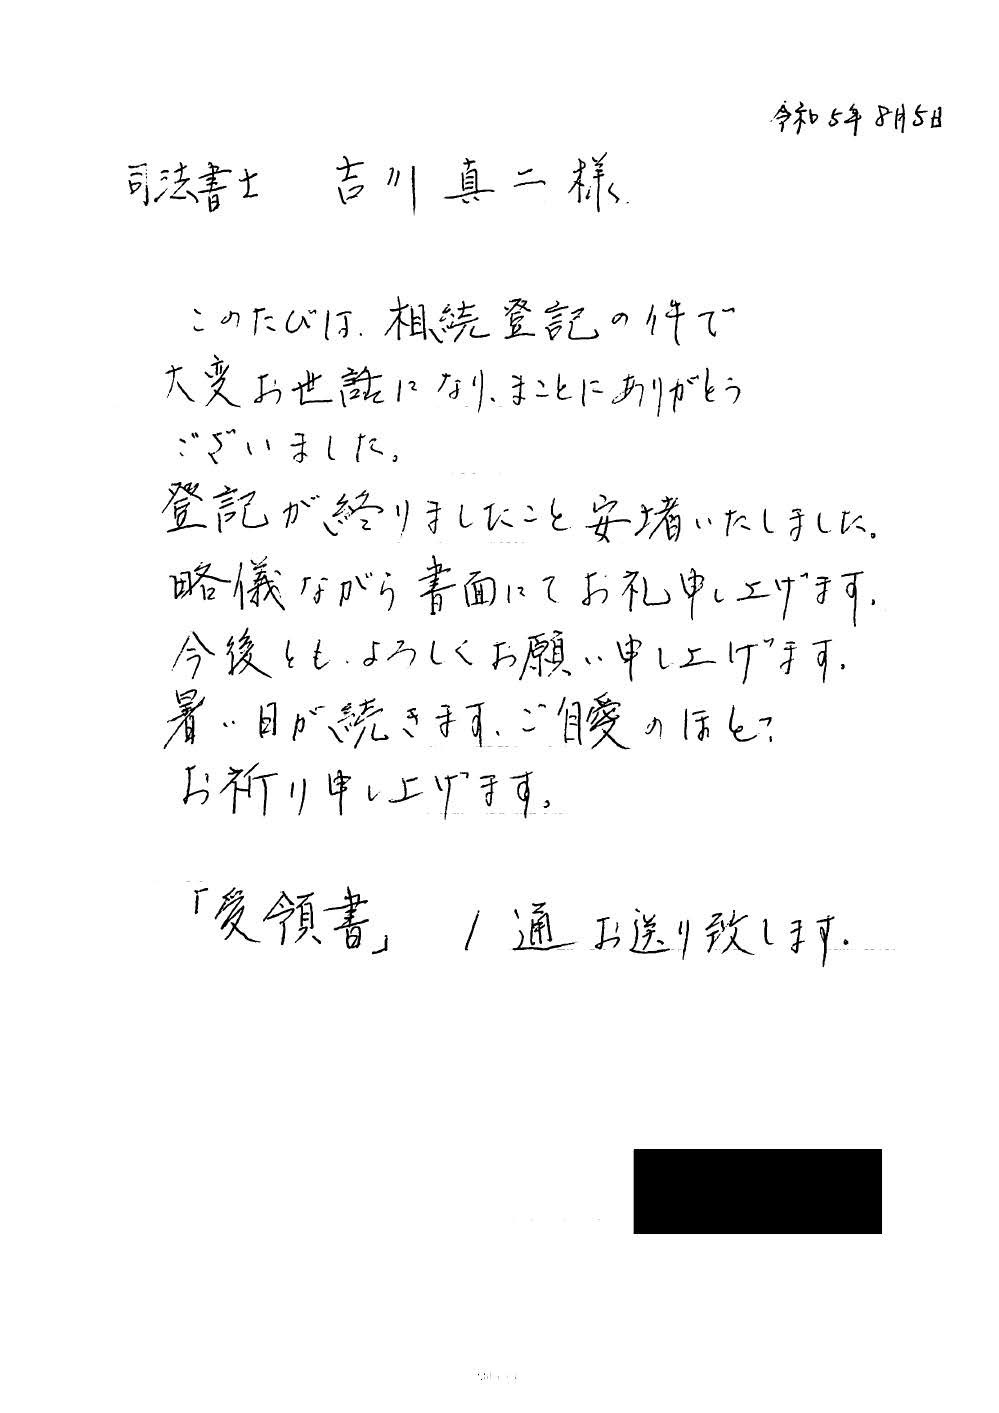 令和5年8月5日
司法書士 吉川真二様
このたびは、相続登記の件で
大変お世話になり、まことにありがとう
ございました。
登記が終りましたこと安堵いたしました。
略儀ながら書面にてお礼申し上げます。
今後とも、よろしくお願い申し上げます。
暑い日が続きます、ご自愛のほど、
お祈り申し上げます。
「受領書」 1通お送り致します。